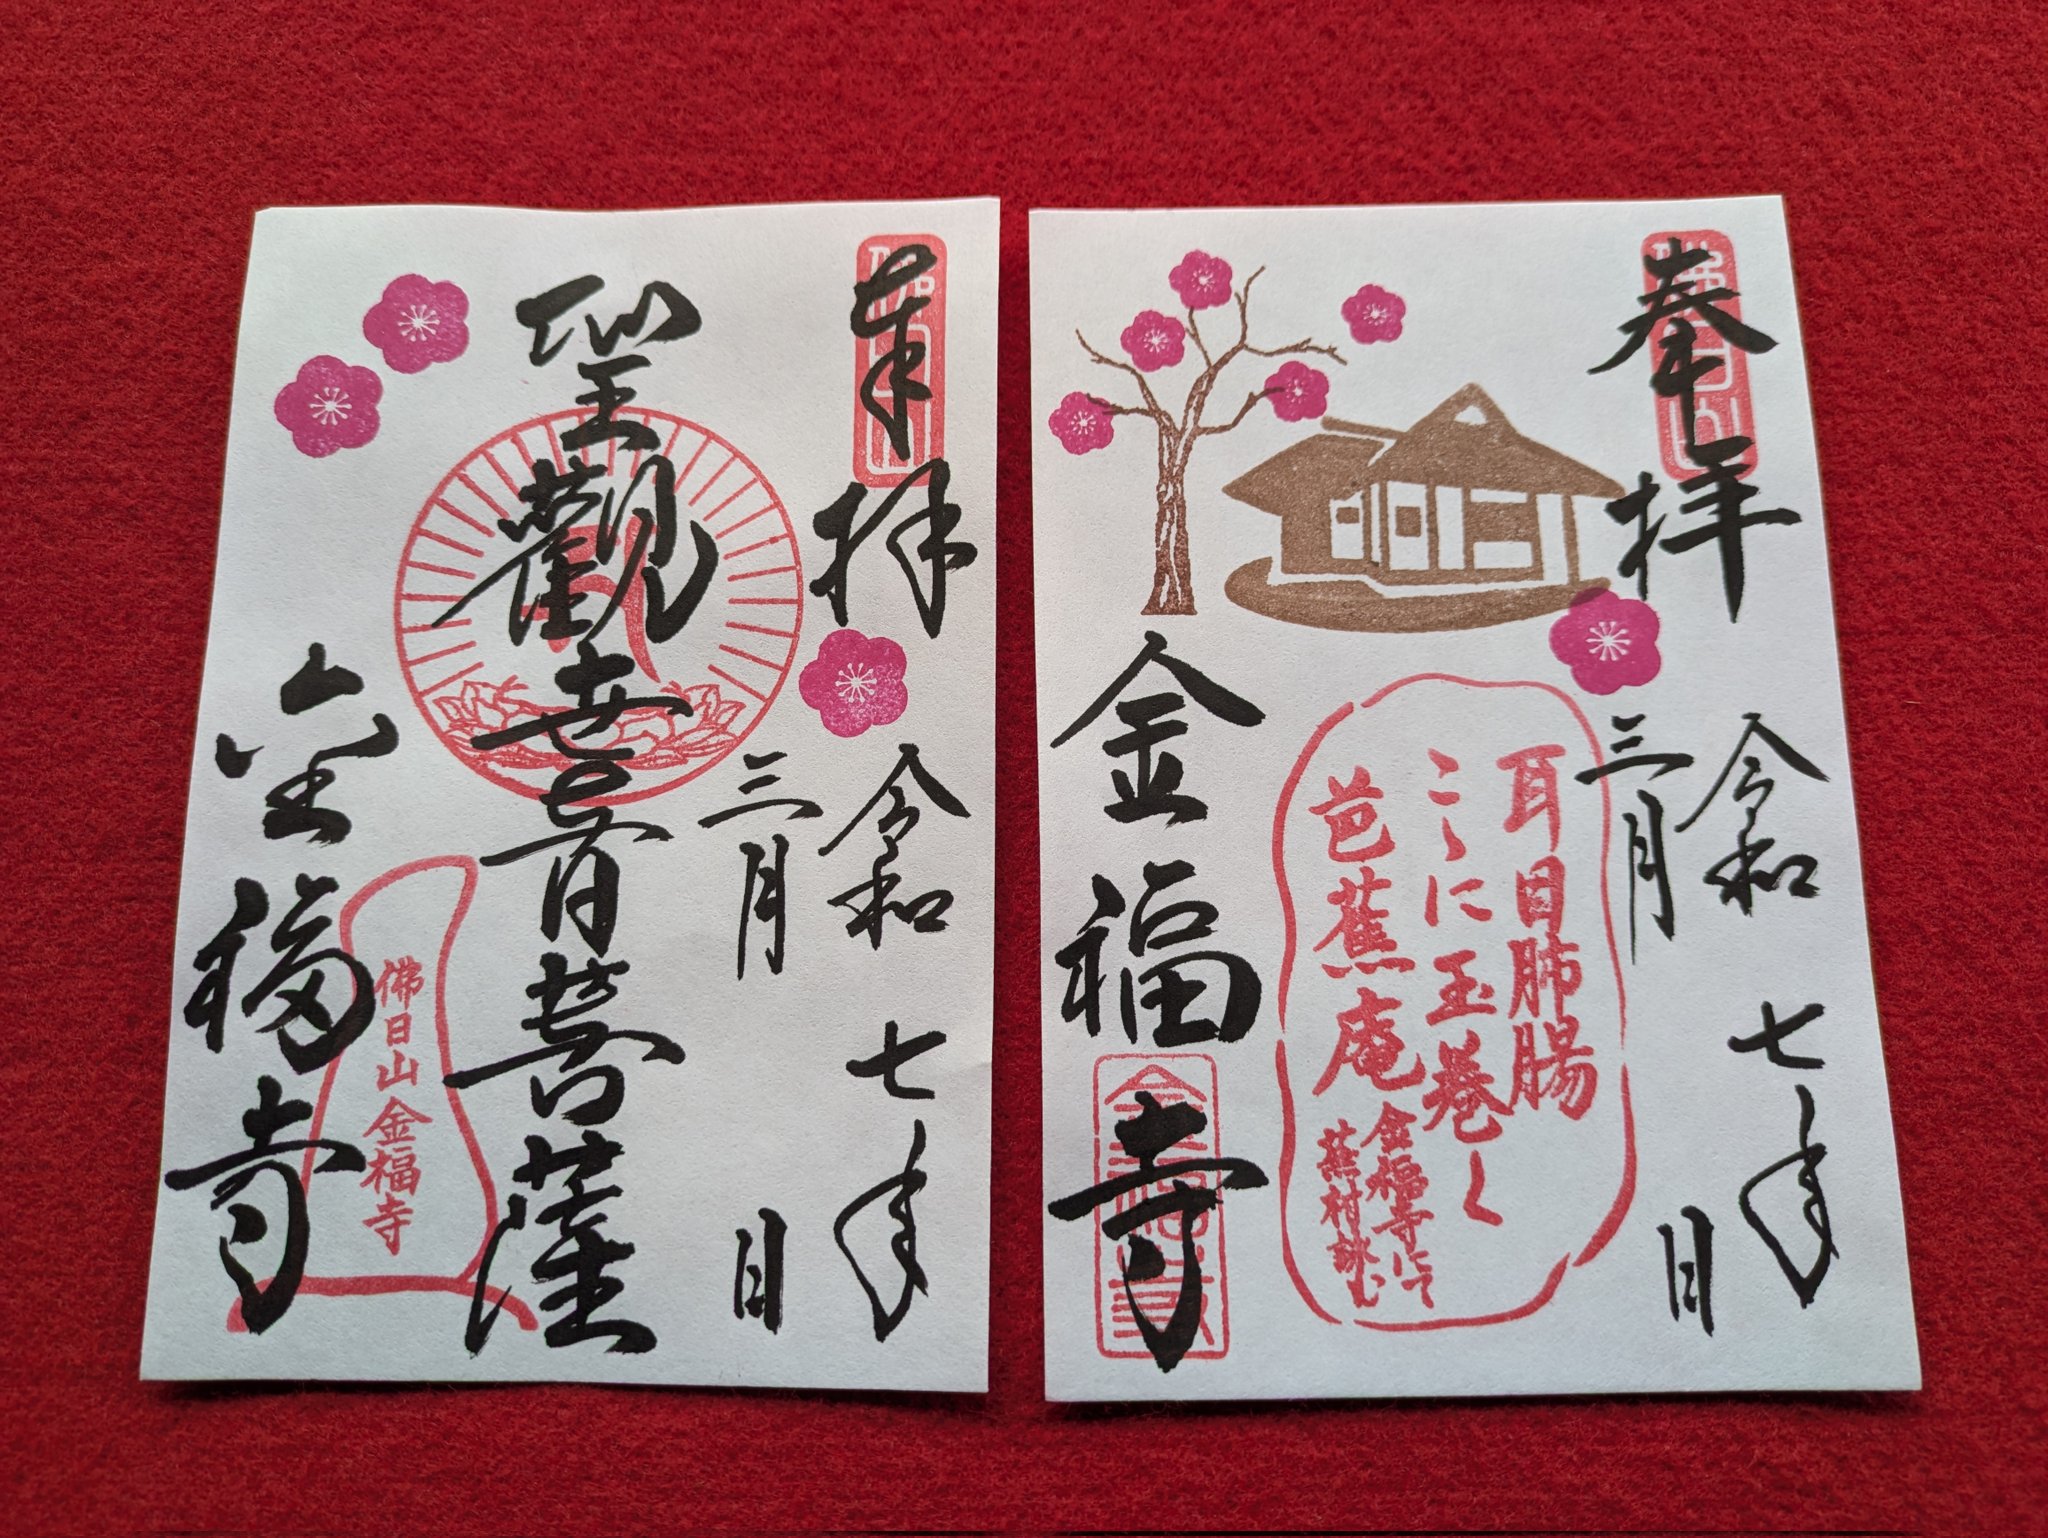 奉拝
令和七年
三月 日
聖観世音菩薩
金福寺
佛日山
佛日山
金福寺
奉拝
佛日山
令和七年
三月 日
耳目肺腸
こゝに玉巻く
芭蕉庵
金福寺にて
蕪村詠む
金福寺